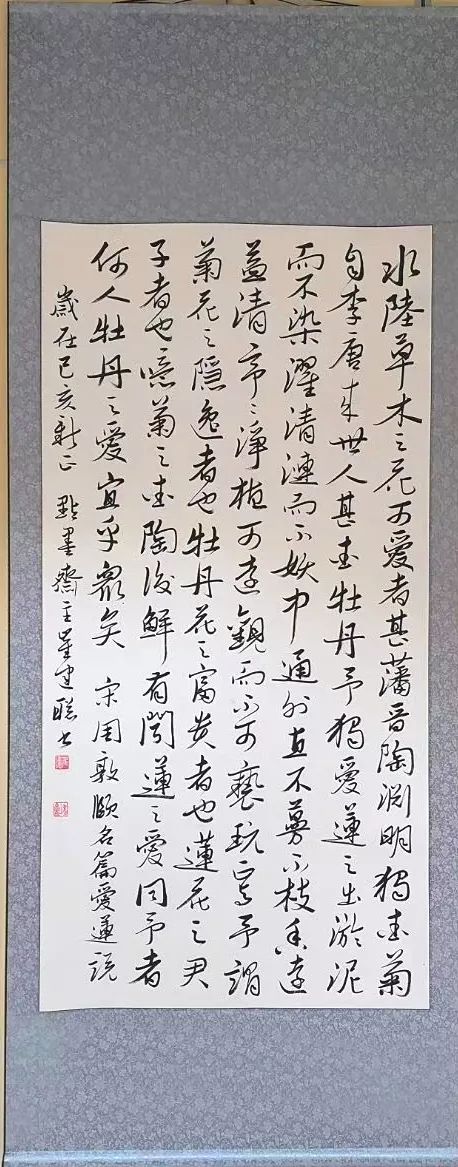 水陸草木之花可愛者甚藩晉陶淵明獨愛菊
自李唐來世人甚愛牡丹予獨愛蓮之出淤泥
而不染濯清漣而不妖中通外直不蔓不枝香遠
益清亭〻淨植可遠觀而不可褻玩焉予謂
菊花之隱逸者也牡丹花之富貴者也蓮花之君
子者也噫菊之愛陶後鮮有聞蓮之愛同予者
何人牡丹之愛宜乎眾矣 宋周敦頤名篇愛蓮說
歲在己亥新正 點墨齋主建聰書